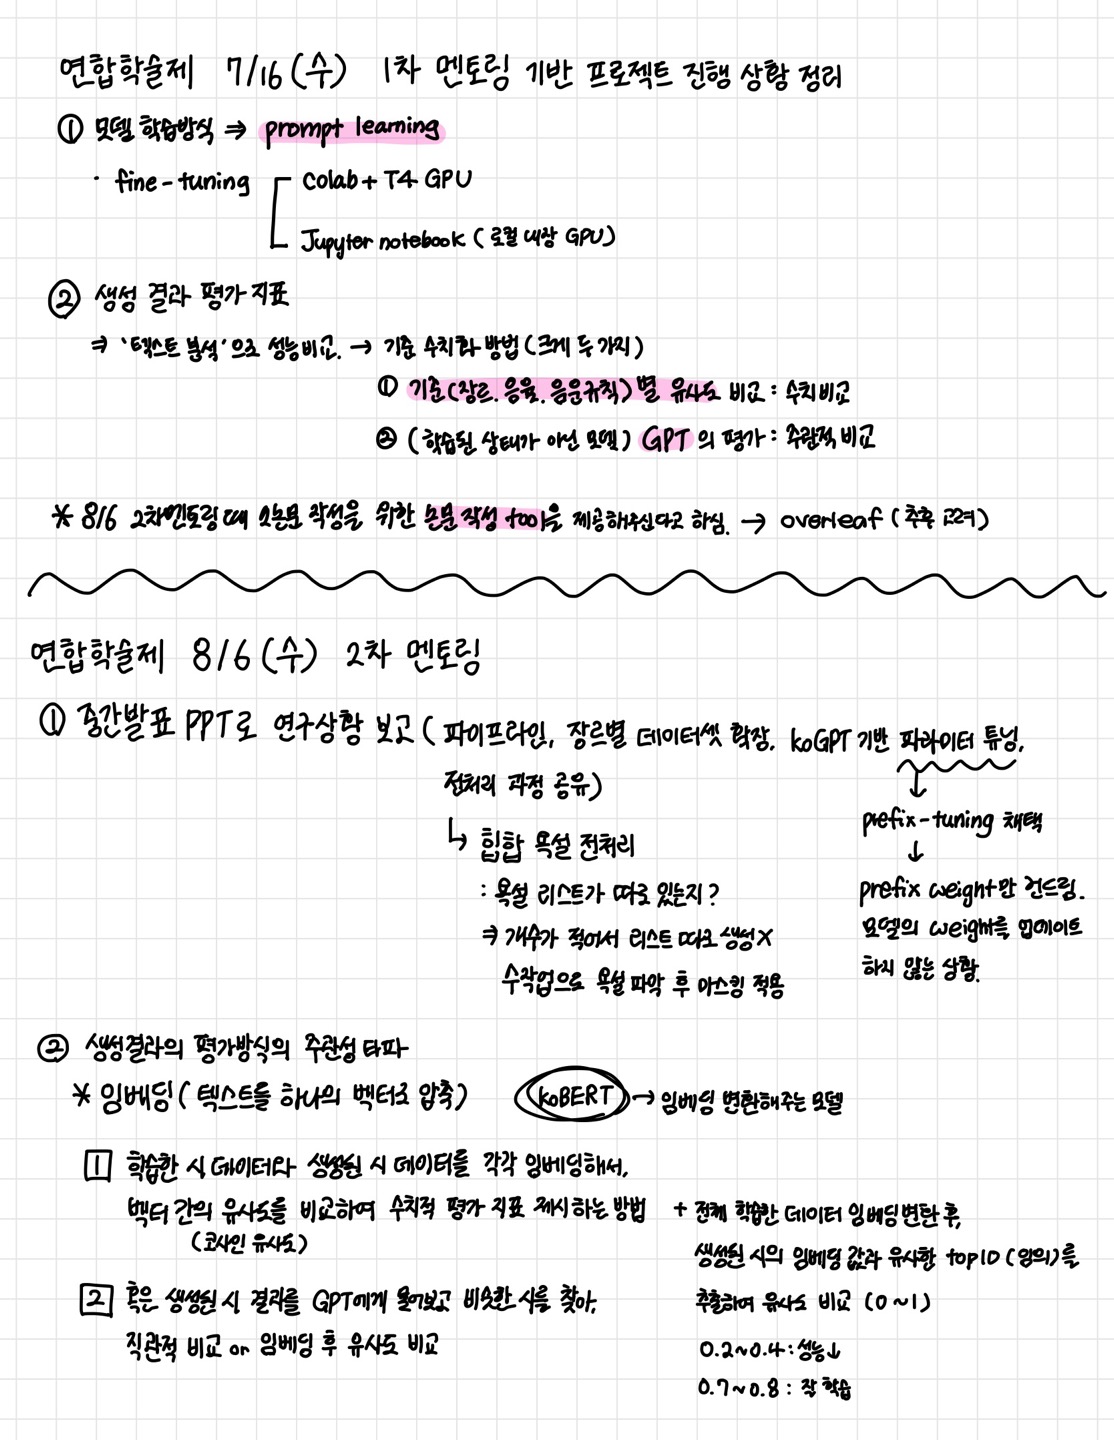 연합학술제 7/16(수) 1차 멘토링 기반 프로젝트 진행 상황 정리
① 모델 학습방식 ⇒ prompt learning
· fine-tuning
colab + T4 GPU
Jupyter notebook (로컬 내장 GPU)
② 생성 결과 평가 지표
⇒ '텍스트 분석'으로 성능비교. → 기준 수치화 방법 (크게 두 가지)
① 기준(장르, 음율, 음운규칙)별 유사도 비교 : 수치비교
② (학습된 상태가 아닌 모델) GPT의 평가 : 주관적 비교
* 8/6 2차멘토링때 소논문 작성을 위한 논문 작성 tool을 제공해주신다고 하심. → overleaf (추후 고려)
연합학술제 8/6(수) 2차 멘토링
① 중간발표 PPT로 연구상황 보고 ( 파이프라인, 장르별 데이터셋 확장, koGPT 기반 파라미터 튜닝,
전처리 과정 공유)
↳ 힙합 욕설 전처리
: 욕설 리스트가 따로 있는지?
⇒ 개수가 적어서 리스트 따로 생성X
수작업으로 욕설 파악 후 마스킹 적용
↓
prefix-tuning 채택
↓
prefix weight만 건드림.
모델의 weight를 업데이트
하지 않는 상황.
② 생성결과의 평가방식의 주관성 타파
* 임베딩 (텍스트를 하나의 벡터로 압축)
koBERT → 임베딩 변환해주는 모델
1 학습한 시 데이터와 생성된 시 데이터를 각각 임베딩해서,
벡터 간의 유사도를 비교하여 수치적 평가 지표 제시하는 방법
(코사인 유사도)
+ 전체 학습한 데이터 임베딩 변환 후,
생성된 시의 임베딩 값과 유사한 top10 (임의)를
추출하여 유사도 비교 (0~1)
0.2~0.4 : 성능↓
0.7~0.8 : 잘 학습
2 혹은 생성된 시 결과를 GPT에게 물어보고 비슷한 시를 찾아,
직관적 비교 or 임베딩 후 유사도 비교